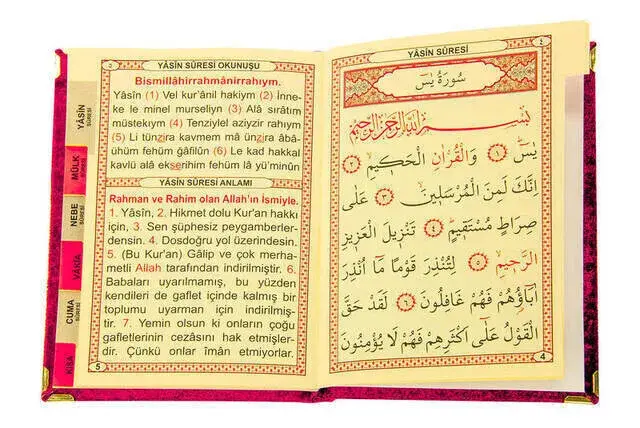 YÂSÎN SÛRESİ
٤
سُورَةُ يٰسٓ
بِسْمِ اللّٰهِ الرَّحْمٰنِ الرَّحِيمِ
يٰسٓ ﴿١﴾ وَالْقُرْاٰنِ الْحَكٖيمِ ﴿٢﴾
اِنَّكَ لَمِنَ الْمُرْسَلٖينَ ﴿٣﴾ عَلٰى
صِرَاطٍ مُسْتَقٖيمٍ ﴿٤﴾ تَنْزٖيلَ الْعَزٖيزِ
الرَّحٖيمِ ﴿٥﴾ لِتُنْذِرَ قَوْمًا مَٓا اُنْذِرَ
اٰبَٓاؤُهُمْ فَهُمْ غَافِلُونَ ﴿٦﴾ لَقَدْ حَقَّ
الْقَوْلُ عَلٰٓى اَكْثَرِهِمْ فَهُمْ لَا يُؤْمِنُونَ
4
٥
YÂSÎN SÛRESİ OKUNUŞU
Bismillâhirrahmânirrahıym.
Yâsîn (1) Vel kur'ânil hakiym (2) İnne-
ke le minel murseliyn (3) Alâ sırâtım
müstekıym (4) Tenziylel aziyzir rahıym
(5) Li tünzira kavmem mâ ünzira âbâ-
ühüm fehüm ğâfilûn (6) Le kad hakkal
kavlü alâ ekserihim fehüm lâ yü'minûn
YÂSÎN SÛRESİ ANLAMI
Rahman ve Rahim olan Allah'ın İsmiyle.
1. Yâsîn, 2. Hikmet dolu Kur'an hakkı
için, 3. Sen şüphesiz peygamberler-
densin. 4. Dosdoğru yol üzerindesin.
5. (Bu Kur'an) Gâlip ve çok merha-
metli Allah tarafından indirilmiştir. 6.
Babaları uyarılmamış, bu yüzden
kendileri de gaflet içinde kalmış bir
toplumu uyarman için indirilmiş-
tir. 7. Yemin olsun ki onların çoğu
gafletlerinin cezasını hak etmişler-
dir. Çünkü onlar îmân etmiyorlar.
5
YÂSÎN
SÛRESİ
MÜLK
NEBE
SÛRESİ
VÂKIA
CUMA
SÛRESİ
KISA